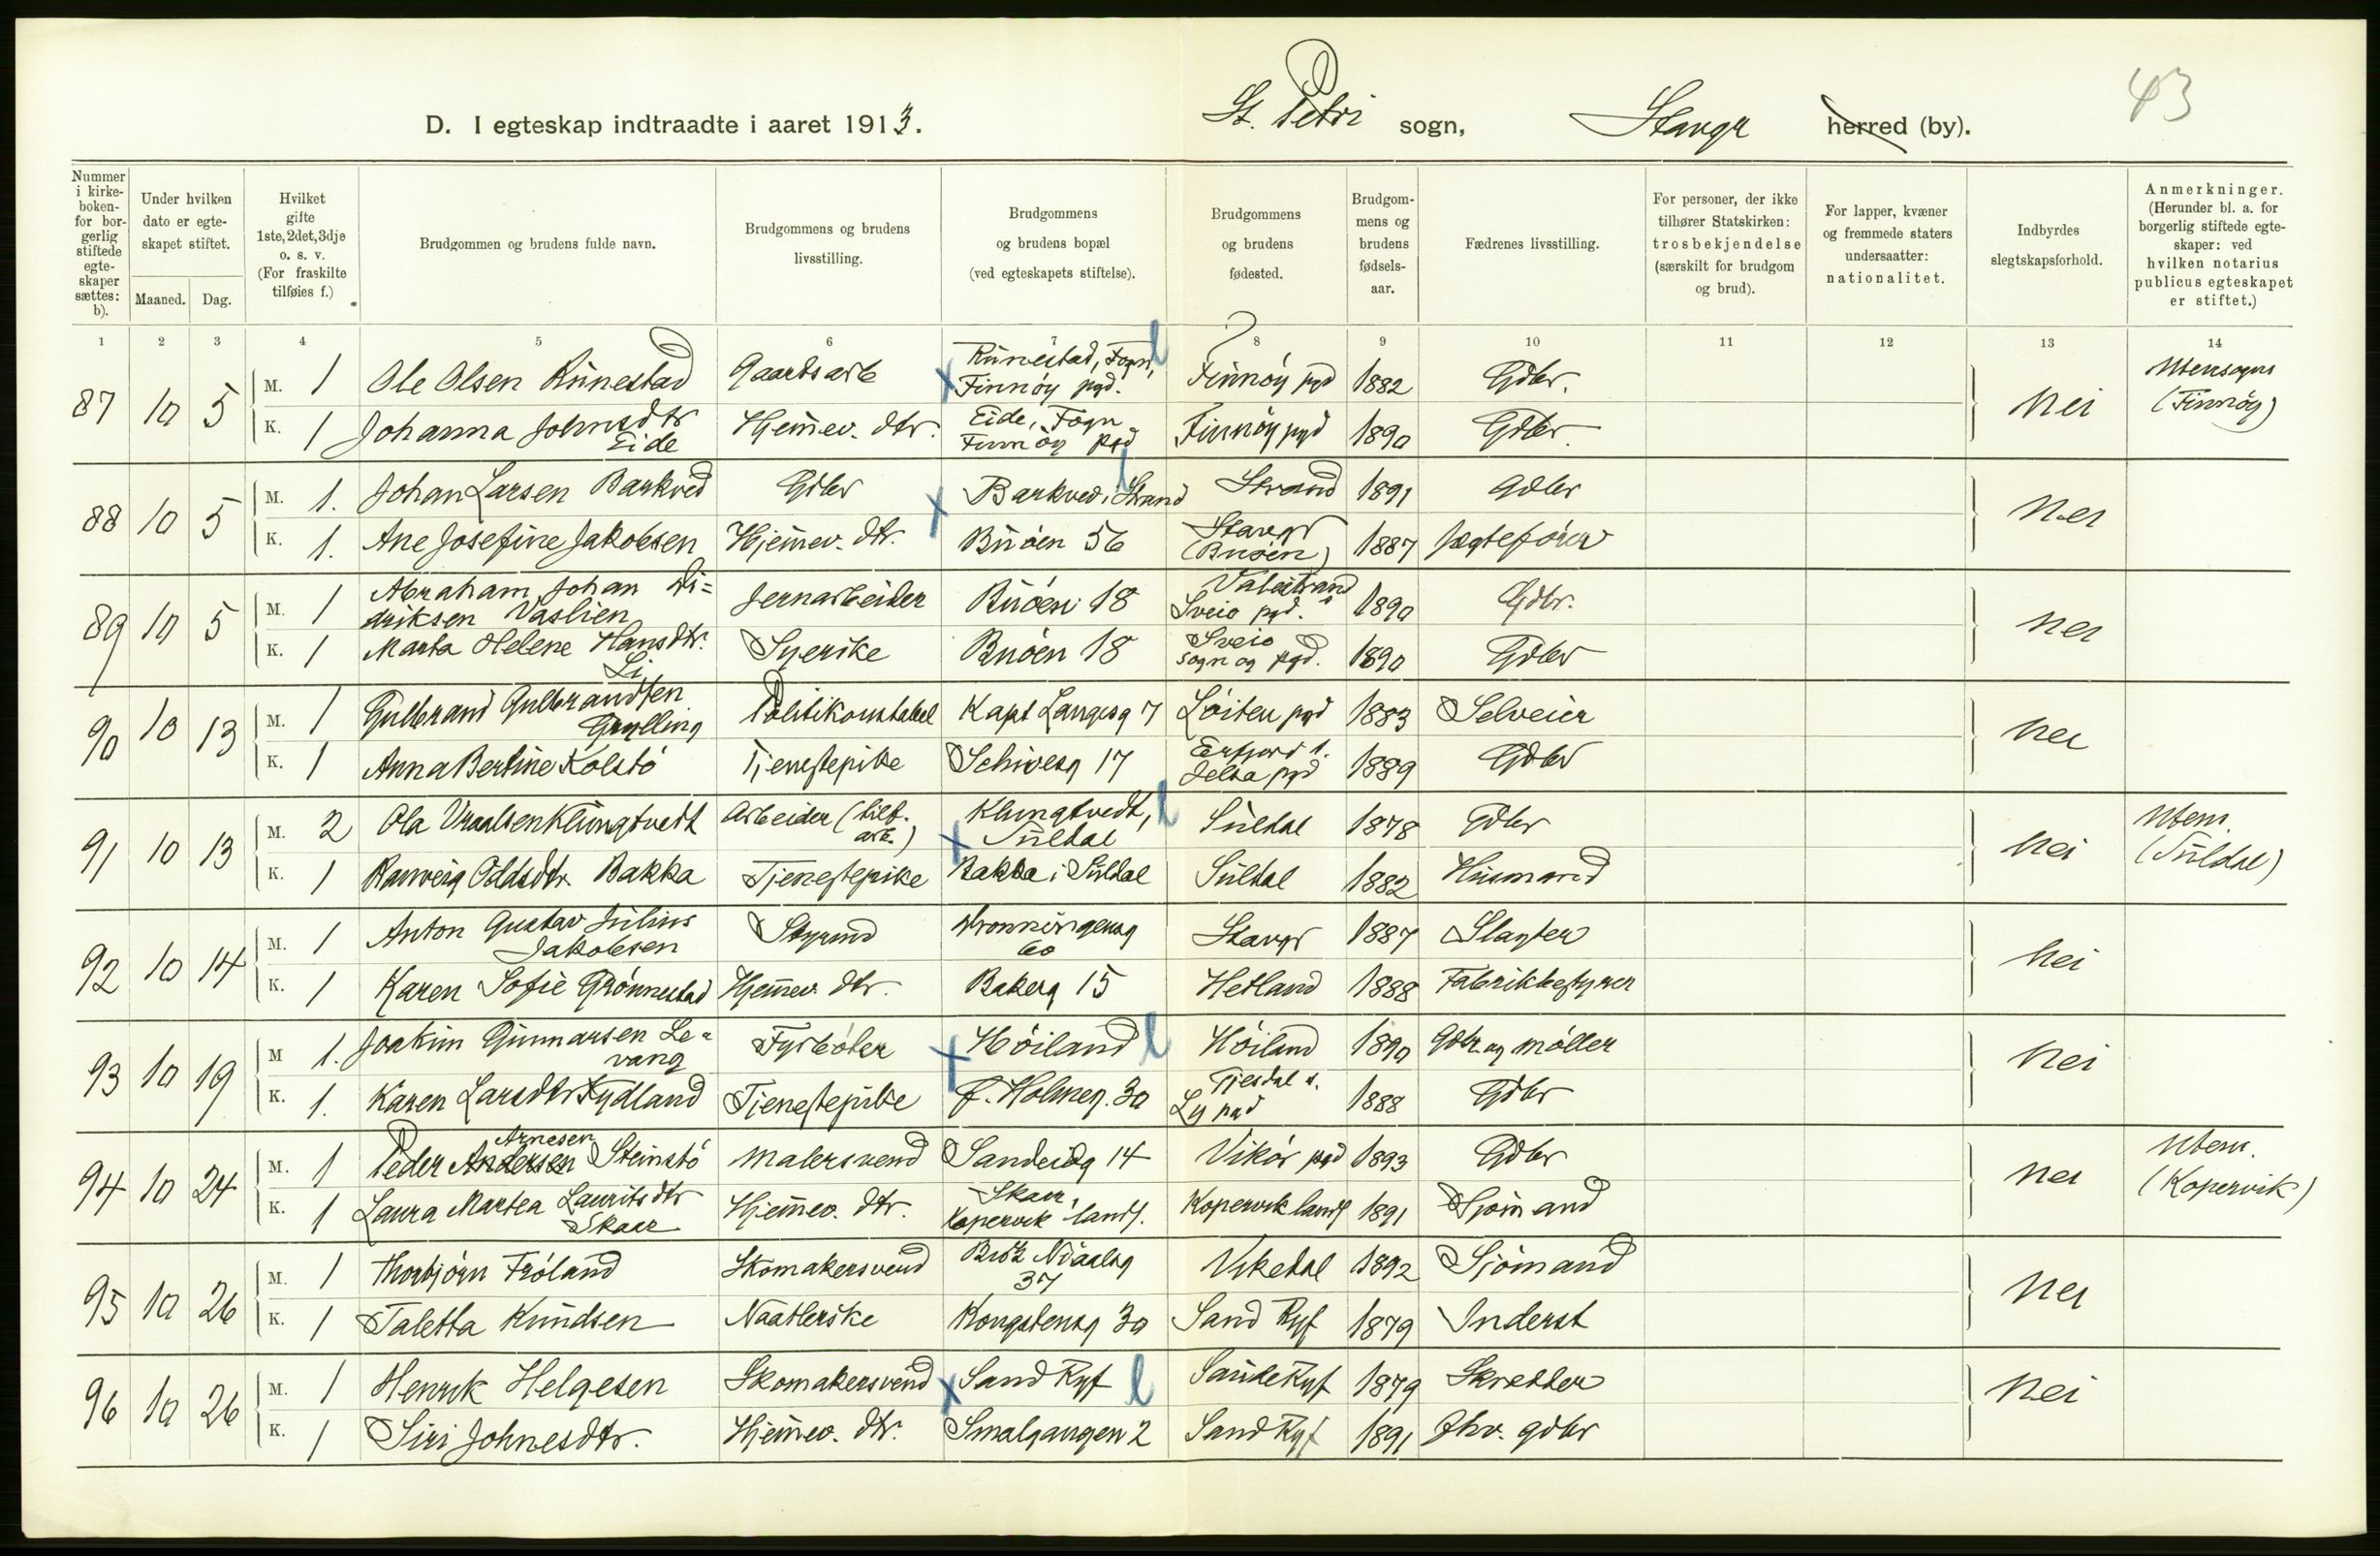 43
D. I egteskap indtraadte i aaret 1913. St. Petri sogn, Stavgr herred (by).
Nummer i kirkeboken for borgerlig stiftede egteskaper sættes: b).
Under hvilken dato er egteskapet stiftet.
Maaned. Dag.
Hvilket gifte 1ste, 2det, 3dje o. s. v. (For fraskilte tilføies f.)
Brudgommen og brudens fulde navn.
Brudgommens og brudens livsstilling.
Brudgommens og brudens bopæl (ved egteskapets stiftelse).
Brudgommens og brudens fødested.
Brudgommens og brudens fødselsaar.
Fædrenes livsstilling.
For personer, der ikke tilhører Statskirken: trosbekjendelse (særskilt for brudgom og brud).
For lapper, kvæner og fremmede staters undersaatter: nationalitet.
Indbyrdes slegtskapsforhold.
Anmerkninger. (Herunder bl. a. for borgerlig stiftede egteskaper: ved hvilken notarius publicus egteskapet er stiftet.)
1 2 3 4 5 6 7 8 9 10 11 12 13 14
87 10 5 M. 1 Ole Olsen Runestad Gaardsarb Runestad, Fogn, Finnöy pgd. Finnöy pgd 1882 Gdbr. Nei Utensogns (Finnöy)
K. 1 Johanna Johnsdtr Eide Hjemmev. dtr. Eide, Fogn Finnöy pgd Finnöy pgd 1890 Gdbr.
88 10 5 M. 1. Johan Larsen Barkved Gdbr Barkved, Strand Strand 1891 Gdbr Nei
K. 1. Ane Josefine Jakobsen Hjemmev. dtr. Buöen 56 Stavgr (Buöen) 1887 Jægteförer
89 10 5 M. 1 Abraham Johan Di=driksen Vaslien Jernarbeider Buöen 18 Valestrand Sveio pgd. 1890 Gdbr. Nei
K. 1 Marta Helene Hansdtr. Li Syerske Buöen 18 Sveio sogn og pgd. 1890 Gdbr
90 10 13 M. 1 Gulbrand Gulbrandsen Grylling Politikonstabel Kapt Langesg 7 Löiten pgd 1883 Selveier Nei
K. 1 Anna Bertine Kolstö Tjenestepike Schivesg 17 Erfjord s. Jelsa pgd 1889 Gdbr
91 10 13 M. 2 Ola Vraalsen Klungtvedt Arbeider (tilf. arb.) Klungtvedt, Suldal Suldal 1878 Gdbr Nei Utens. (Suldal)
K. 1 Ranveig Oddsdtr Bakka Tjenestepike Bakka i Suldal Suldal 1882 Husmand
92 10 14 M. 1 Anton Gustav Julius Jakobsen Styrmd Dronningensg 60 Stavgr 1887 Slagter Nei
K. 1 Karen Sofie Grönnestad Hjemmev. dtr. Bakerg 15 Hetland 1888 Fabrikbestyrer
93 10 19 M 1. Joakim Gunnarsen Le=vang Fyrböter Höiland Höiland 1890 Gdbr. og möller Nei
K. 1. Karen Larsdtr Fydland Tjenestepike J. Holmeg. 30 Gjesdal s. Ly pgd 1888 Gdbr
94 10 24 M. 1 Peder Andersen Arnesen Steinstö Malersvend Sandeidg 14 Vikör pgd 1893 Gdbr Nei Utens. (Kopervik)
K. 1 Laura Martea Lauritsdtr Skaar Hjemmev. dtr. Skaar, Kopervik lands. Kopervik lands 1891 Sjömand
95 10 26 M. 1 Thorbjörn Fröland Skomakersvend Nisaalsg 37 Vikedal 1892 Sjömand Nei
K. 1 Taletta Knudsen Naatlerske Kongstensg 30 Sand Ryf 1879 Inderst
96 10 26 M. 1 Henrik Helgesen Skomakersvend Sand Ryf Sande Ryf 1879 Skredder Nei
K. 1 Siri Johnesdtr. Hjemmev. dtr. Smalgangen 2 Sand Ryf 1891 fhv. gdbr